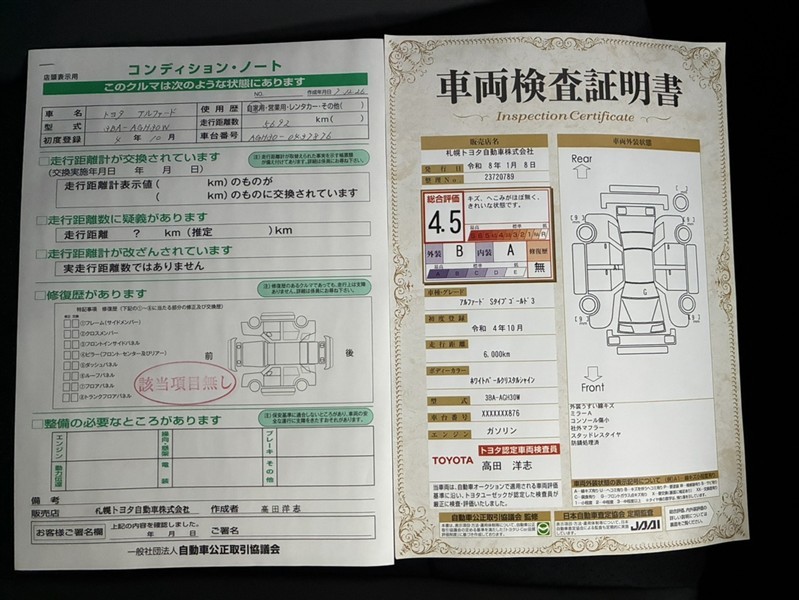 店頭表示用
コンディション・ノート
このクルマは次のような状態にあります
NO.
作成年月日
車名 トヨタ アルファード
使用歴 自家用・営業用・レンタカー・その他( )
型式 3BA-AGH30W
走行距離数 5692 km( )
初度登録 4年10月
車台番号
走行距離計が交換されています
(交換実施年月日 年 月 日)
走行距離計表示値( km)のものが
( km)のものに交換されています
走行距離数に疑義があります
走行距離 ? km(推定 )km
走行距離計が改ざんされています
実走行距離数ではありません
修復歴があります
特記事項 修復歴(下記の①~⑧に当たる部分の修正及び交換歴)
①フレーム(サイドメンバー)
②クロスメンバー
③フロントインサイドパネル
④ピラー(フロント・センター及びリアー)
⑤ダッシュパネル
⑥ルーフパネル
⑦フロアパネル
⑧トランクフロアパネル
前
後
該当項目無し
整備の必要なところがあります
エンジン
ブレーキ
電装
その他
備考
販売店 札幌トヨタ自動車株式会社 作成者 高田洋志
お客様ご署名欄
上記の内容を確認しました。
年 月 日 ご署名
一般社団法人 自動車公正取引協議会
車両検査証明書
Inspection Certificate
販売店名
札幌トヨタ自動車株式会社
発行日 令和 8年 1月 8日
整理No 23720789
総合評価
4.5
キズ、へこみがほぼ無く、
きれいな状態です。
外装 B 内装 A 修復歴 無
A B C D E
車種・グレード
アルファード Sタイプゴールド3
初度登録
令和 4年10月
走行距離
6,000km
ボディーカラー
ホワイトパールクリスタルシャイン
型式
3BA-AGH30W
車台番号
XXXXXXX876
エンジン
ガソリン
TOYOTA
トヨタ認定車両検査員
高田 洋志
当車両は、自動車オークションで適用される車両評価
基準に沿い、トヨタユーゼックが認定した検査員が
厳正に検査・評価いたしました。
自動車公正取引協議会 監修
車両外装状態
Rear
G
Front
外装うすい線キズ
ミラーA
コンソール傷小
社外マフラー
スタッドレスタイヤ
防錆処理済
車両外装状態の表示記号について
日本自動車査定協会 定期監査
JAAI